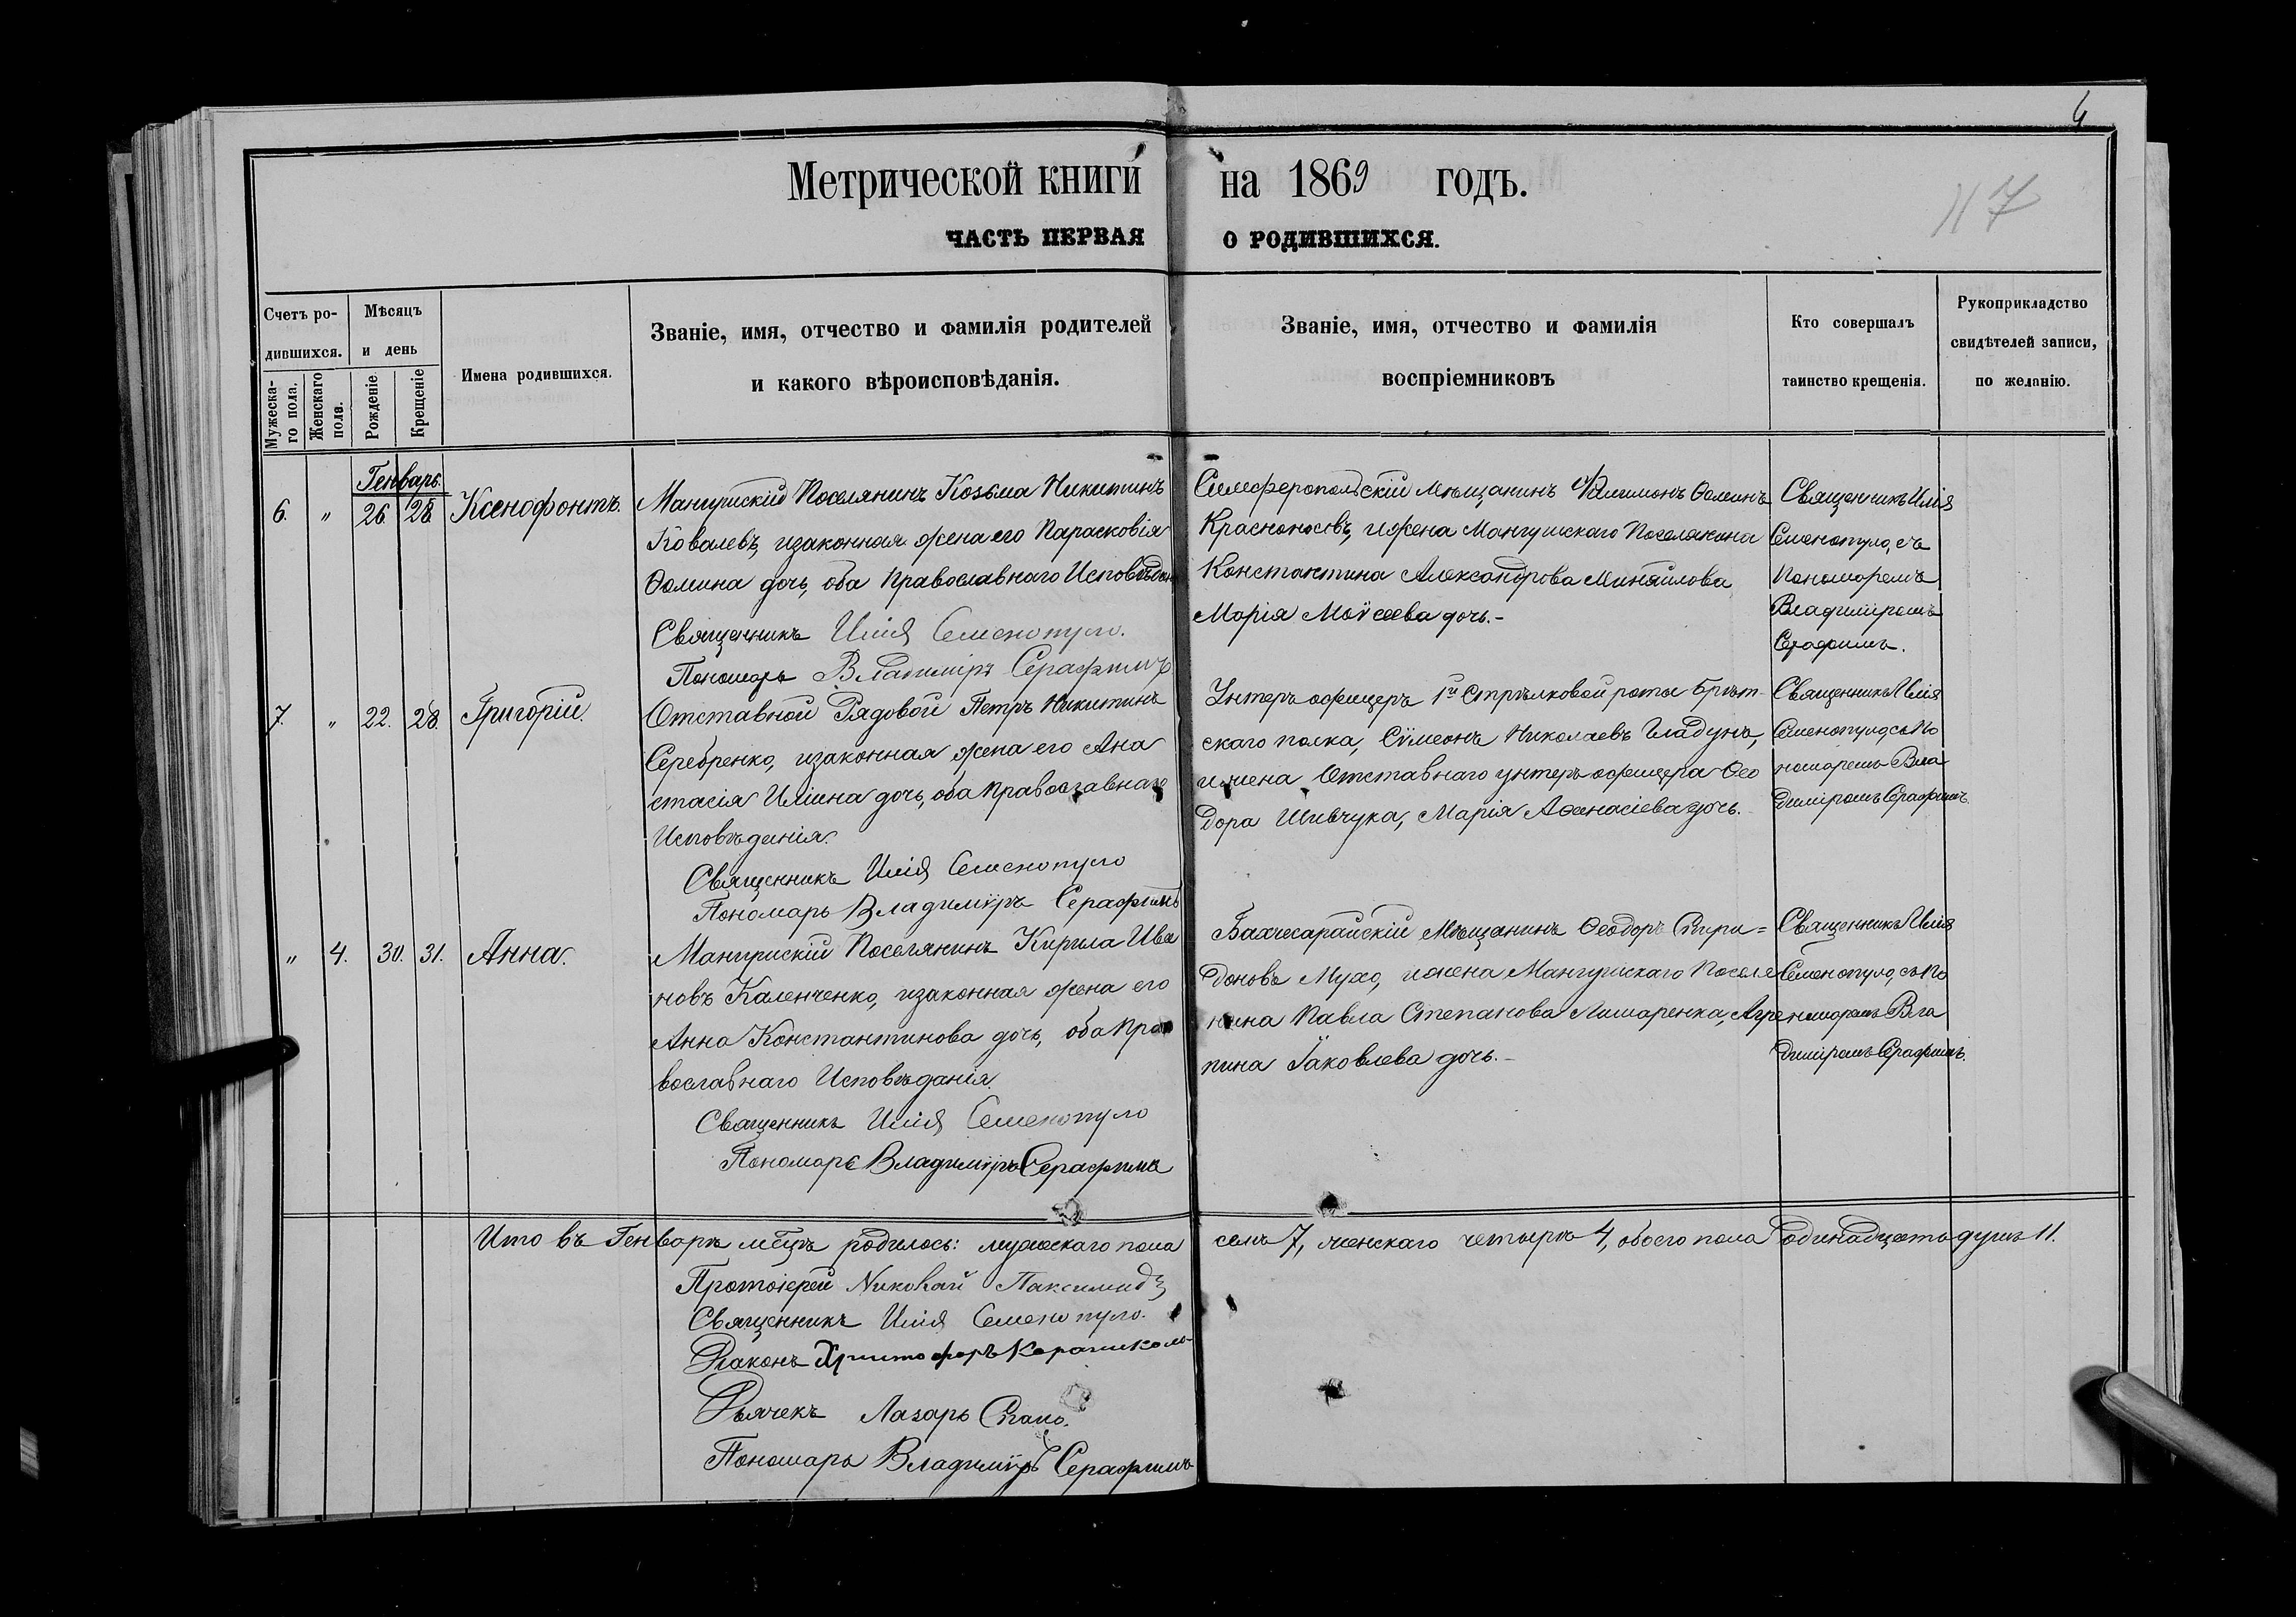 4
Метрической книги на 1869 годъ.
117
ЧАСТЬ ПЕРВАЯ О РОДИВШИХСЯ.
Счетъ ро-
дившихся.
Мужеска-
го пола.
Женскаго
пола.
Мѣсяцъ
и день
Рожденіе
Крещеніе
Имена родившихся.
Званіе, имя, отчество и фамилія родителей
и какого вѣроисповѣданія.
Званіе, имя, отчество и фамилія
воспріемниковъ
Кто совершалъ
таинство крещенія.
Рукоприкладство
свидѣтелей записи,
по желанію.
Генварь.
6. " 26. 28. Ксенофонтъ.
Мангушскій Поселянинъ Козьма Никитинъ
Ковалевъ, изаконная жена его Парасковія
Фомина дочь, оба Православнаго Исповѣдан
Священникъ Илія Семенопуло.
Пономарь Владиміръ Серафимъ
Симферопольскій Мѣщанинъ Филимонъ Фоминъ
Красноносовъ, и жена Мангушскаго Поселянина
Константина Александрова Михайлова
Марія Моѵсеева дочь.-
Священникъ Илія
Семенопуло, съ
Пономаремъ
Владиміромъ
Серафимъ.
7. " 22. 28. Григорій.
Отставной Рядовой Петръ Никитинъ
Серебренко, изаконная жена его Ана
стасія Иліина дочь, оба Православнаго
Исповѣданія.
Священникъ Илія Семенопуло
Пономарь Владиміръ Серафимъ
Унтеръ офицеръ 1й Стрѣлковой роты Брѣст-
скаго полка, Сѵмеонъ Николаевъ Гладунъ,
и жена Отставнаго унтеръ офицера Ѳео
дора Шевчука, Марія Аѳанасіева дочь.
Священникъ Илія
Семенопуло, съ По
номаремъ Вла
диміромъ Серафимъ.
" 4. 30. 31. Анна.
Мангушскій Поселянинъ Кирила Ива
новъ Каленченко, изаконная жена его
Анна Константинова дочь, оба Пра
вославнаго Исповѣданія.
Священникъ Илія Семенопуло
Пономарь Владиміръ Серафимъ
Бахчесарайскій Мѣщанинъ Ѳеодоръ Спири=
доновъ Мухо, и жена Мангушскаго Поселя
нина Павла Степанова Лимаренка, Агре
пина Іаковлева дочь.-
Священникъ Илія
Семенопуло, съ По
номаремъ Вла
диміромъ Серафимъ.
Итo въ Генварѣ мѣцѣ родилось: мужескаго пола семъ 7, женскаго четыре 4, обоего пола одинадцать душъ 11.
Протоіерей Николай
Священникъ Илія Семенопуло.
Діаконъ Христофоръ
Дьячекъ Лазарь
Пономарь Владиміръ Серафимъ